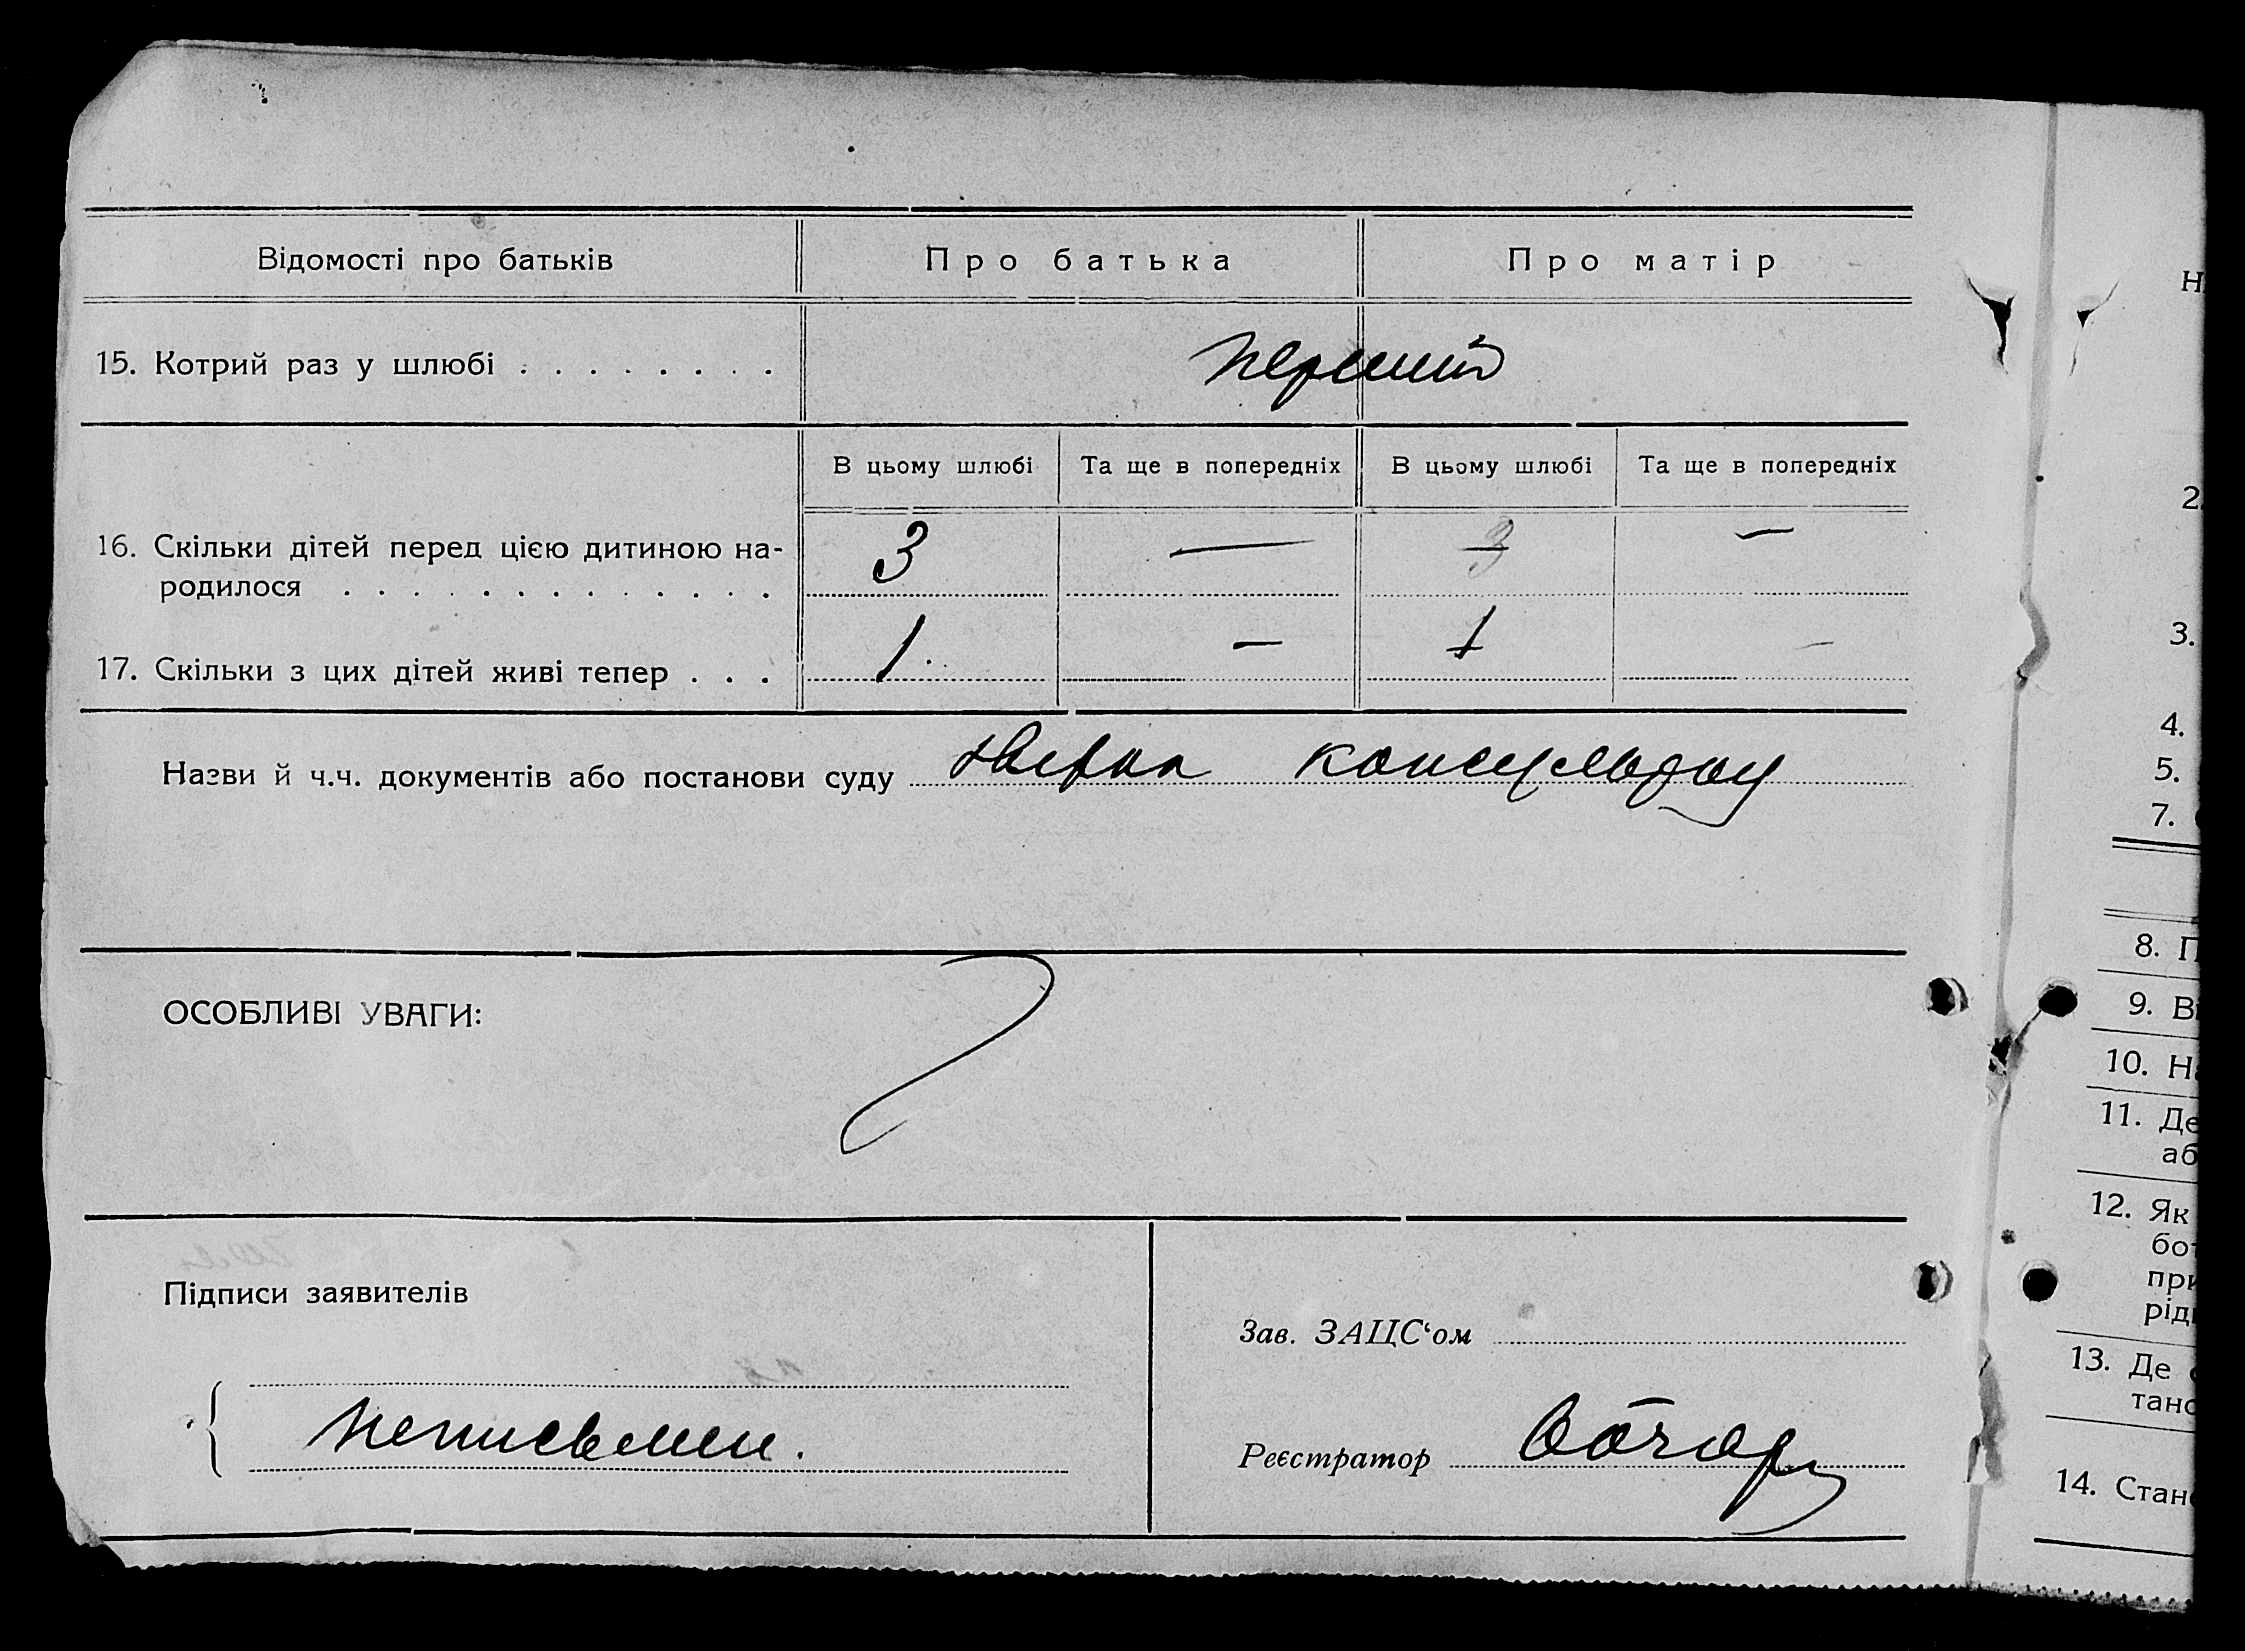 Відомості про батьків Про батька Про матір
15. Котрий раз у шлюбі . . . . . . . . перший
В цьому шлюбі Та ще в попередніх В цьому шлюбі Та ще в попередніх
16. Скільки дітей перед цією дитиною на- 3 — 3 —
родилося . . . . . . . . . . . . .
17. Скільки з цих дітей живі тепер . . . 1 — 1 —
Назви й ч.ч. документів або постанови суду
ОСОБЛИВІ УВАГИ:
Підписи заявителів
Зав. ЗАЦС‘ом
неписьмен.
Реєстратор
Н
2.
3.
4.
5.
7.
8. П
9. В
10. На
11. Де
аб
12. Як
бот
при
рідн
13. Де
тано
14. Стан